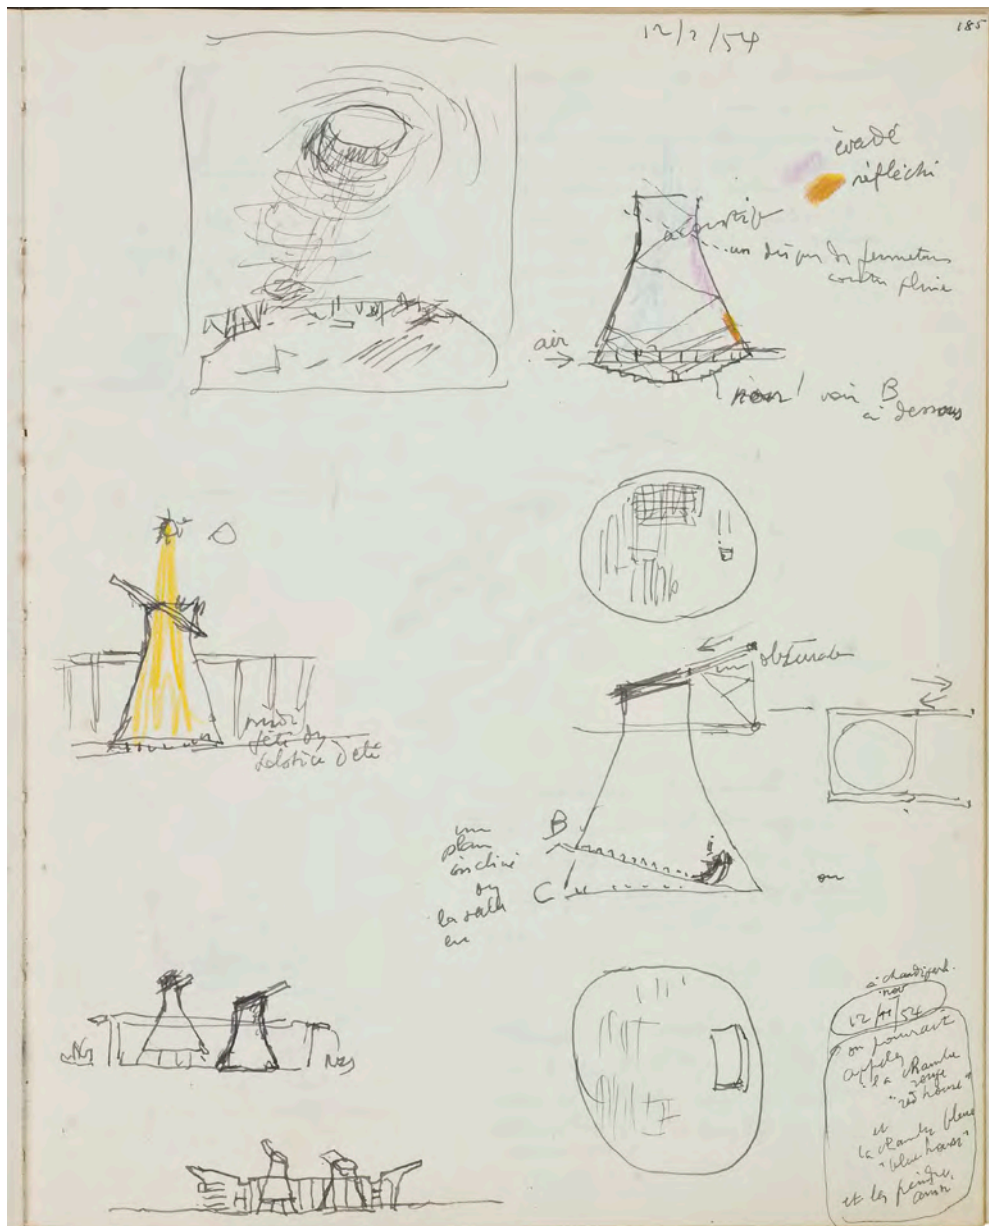 12/2/54
185
évadé
réfléchi
acoustique
un disque de fermeture
contre pluie
air
noir / voir B
à dessous
fête du
solstice d'été
un obturateur
B
un
plan
incliné
ou
la salle
en
C
ou
à chandigarh.
nov
12/11/54
on pourrait
appeler
"la chambre
rouge
"red house"
et
la chambre bleue
"blue house"
et les peindre
ainsi